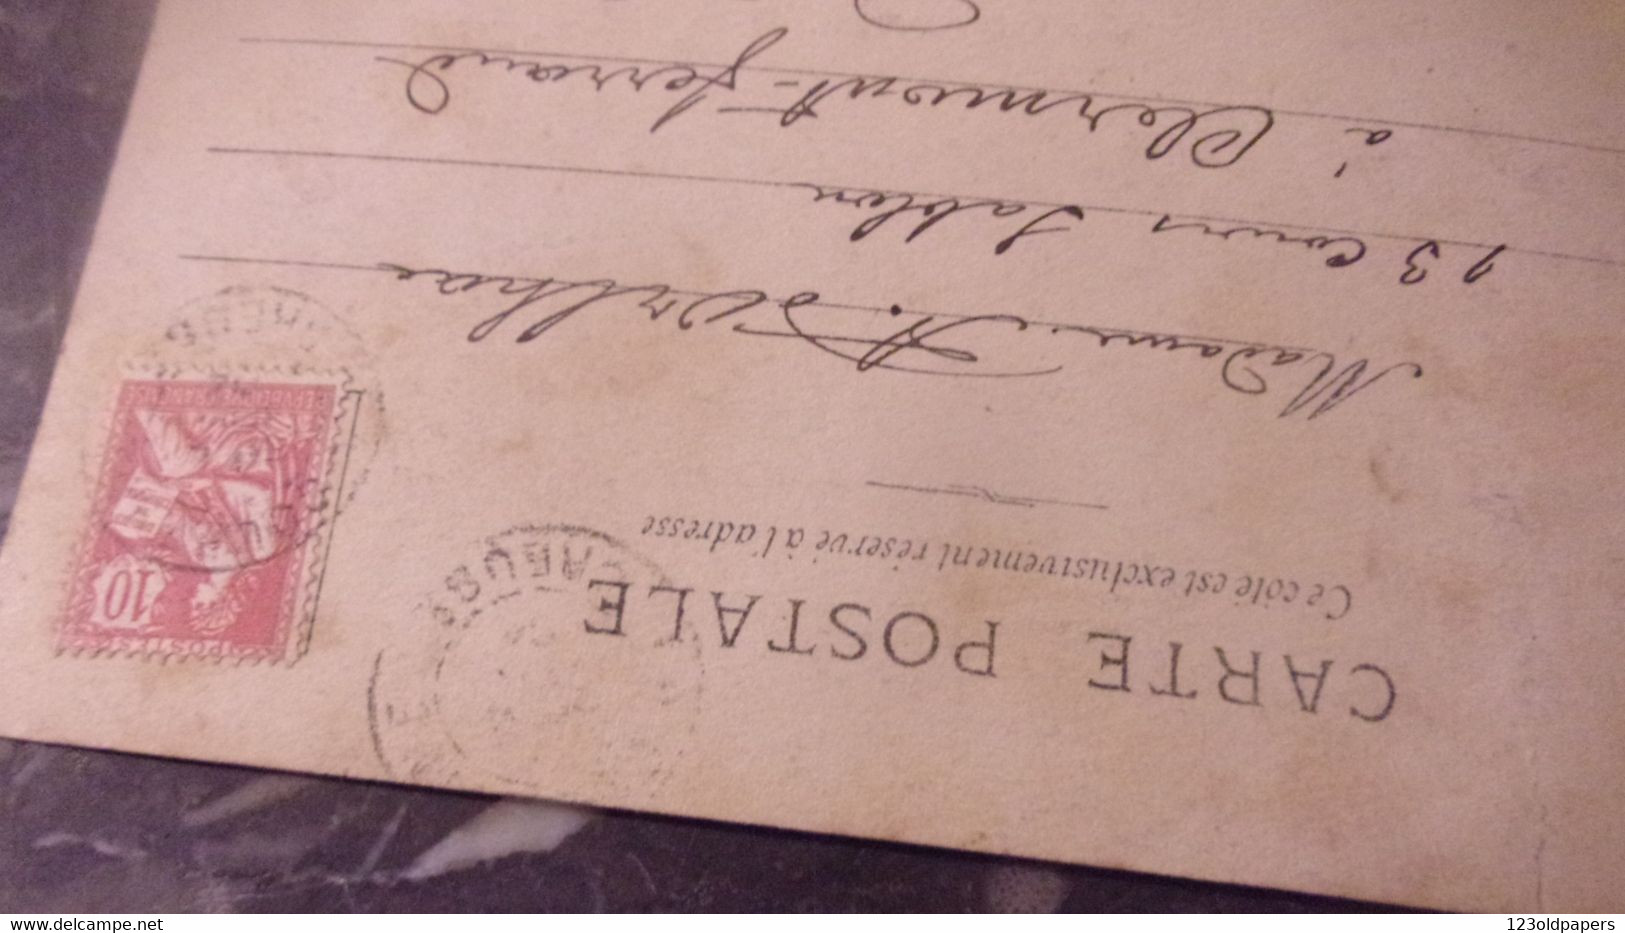 CARTE POSTALE
Ce côté est exclusivement réservé à l'adresse
Madame A.
13 Cours Sablon
à Clermont-Ferrand
POSTES
10
REPUBLIQUE FRANÇAISE
delcampe.net
123oldpapers